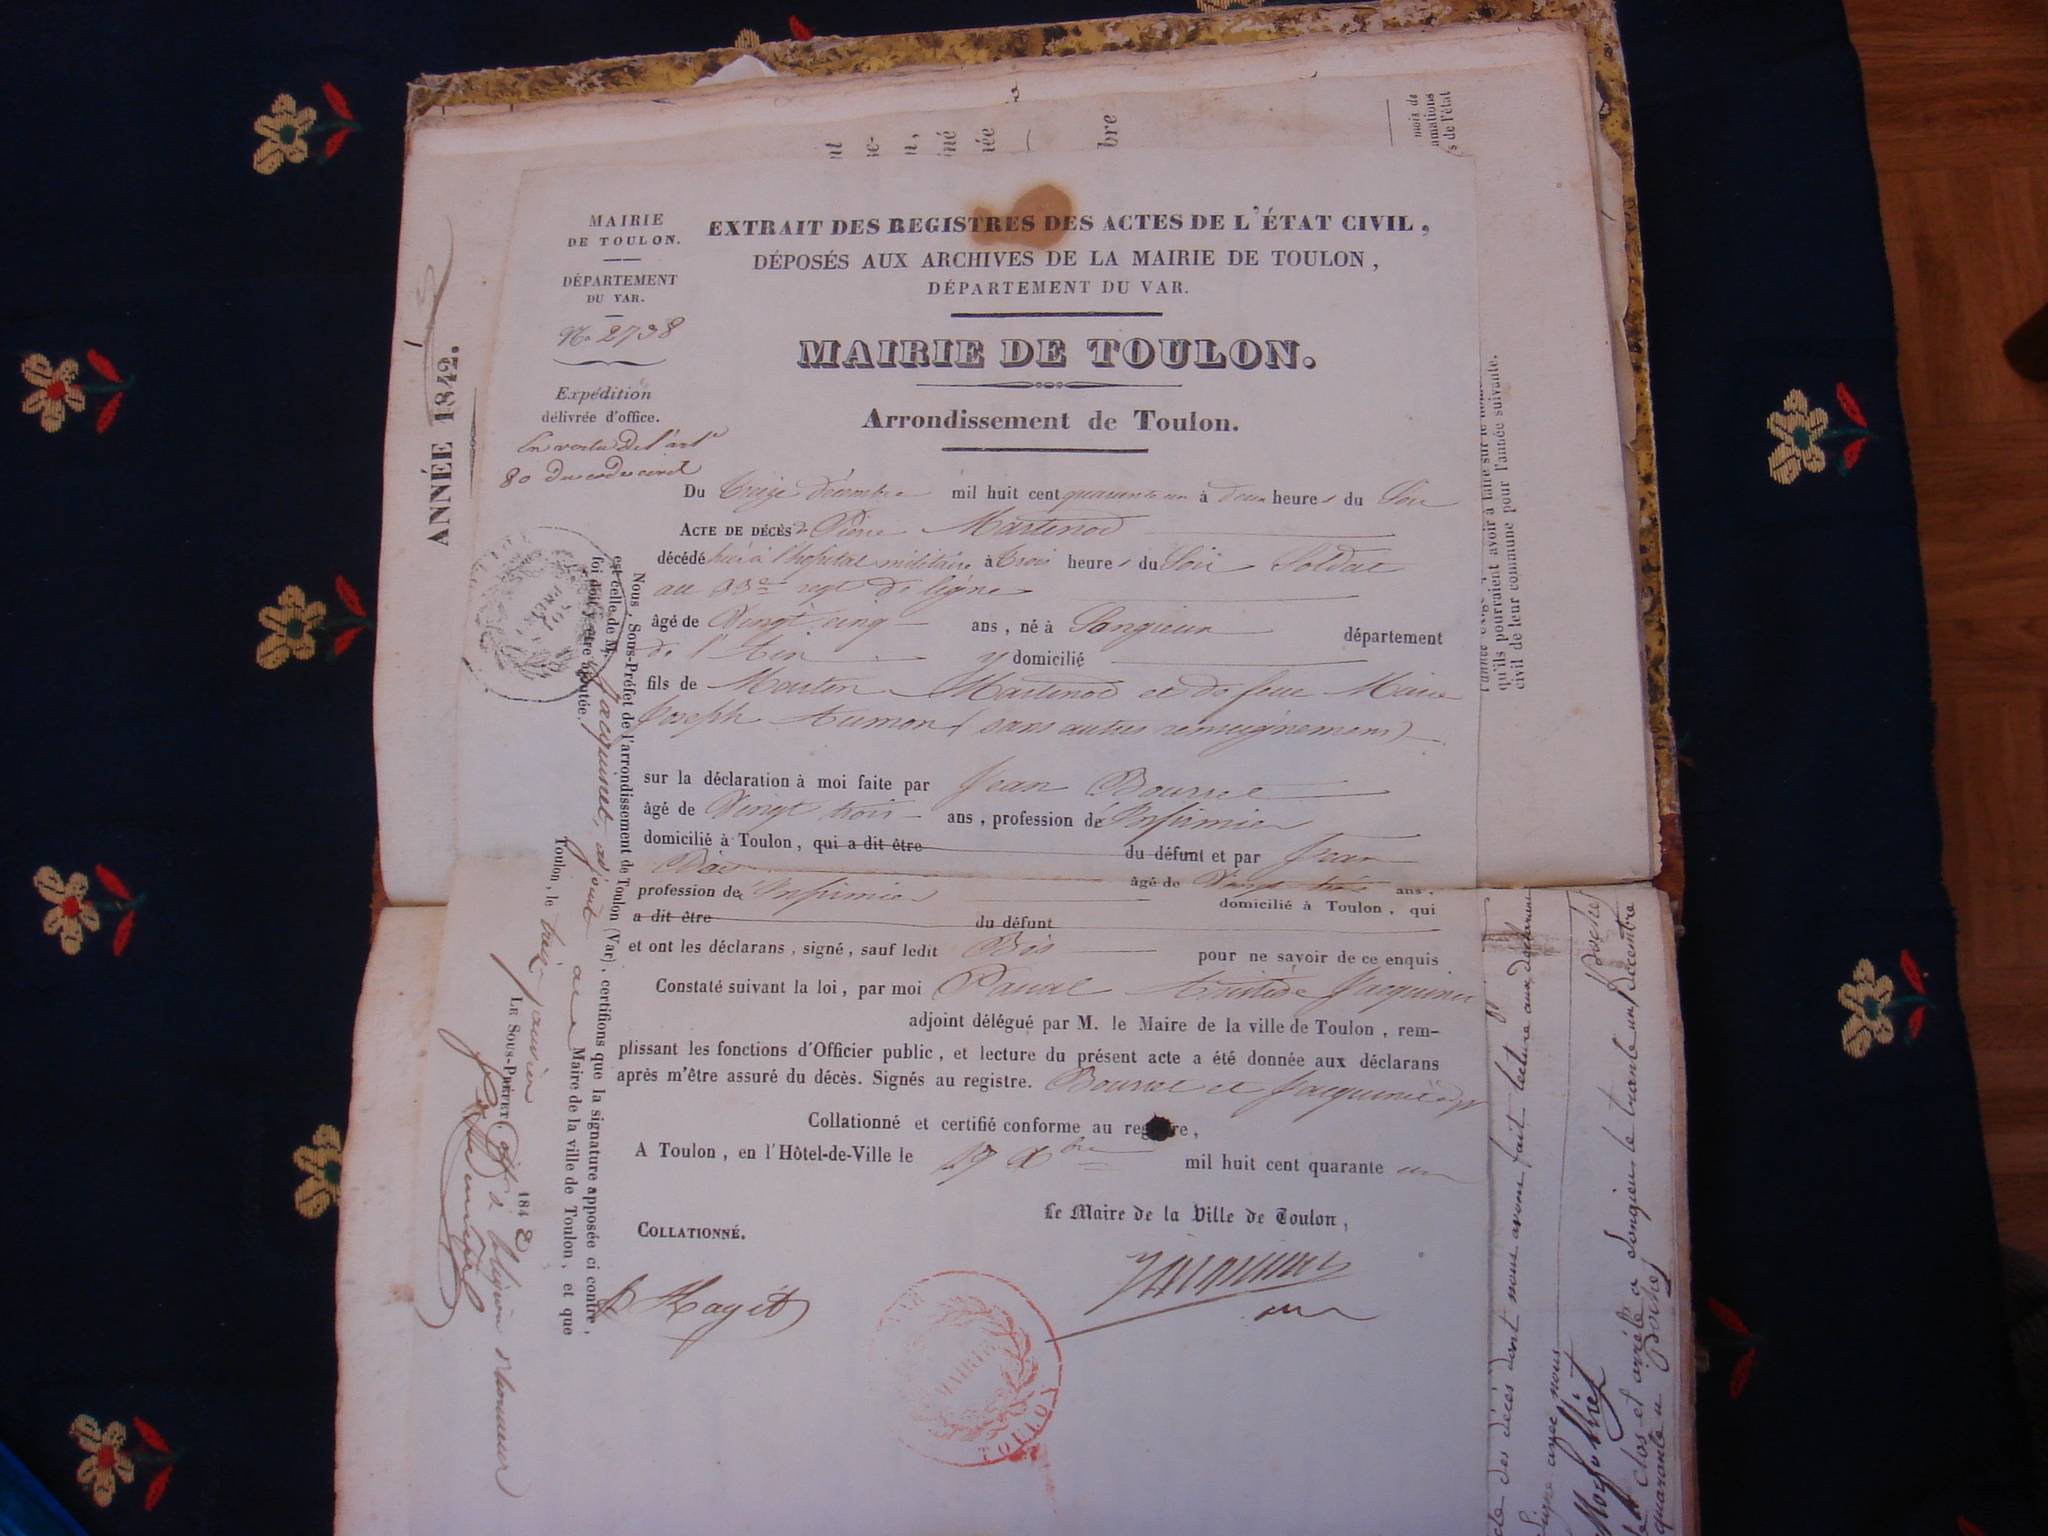 MAIRIE
DE TOULON.
DÉPARTEMENT
DU VAR.
No 2738
Expédition
délivrée d'office.
En vertu de l'art
80 du code civil
EXTRAIT DES REGISTRES DES ACTES DE L'ÉTAT CIVIL,
DÉPOSÉS AUX ARCHIVES DE LA MAIRIE DE TOULON,
DÉPARTEMENT DU VAR.
MAIRIE DE TOULON.
Arrondissement de Toulon.
Du treize décembre mil huit cent quarante un à deux heures du Soir
ACTE DE DÉCÈS de Pierre Martinod
décédé hier à l'hopital militaire à trois heures du Soir Soldat
au 33e regt de ligne
âgé de Vingt cinq ans, né à Songieux département
de l'Ain y domicilié
fils de Martin Martinod et de feue Marie
Joseph Aumon (sans autres renseignemens)
sur la déclaration à moi faite par Jean Boursel
âgé de Vingt trois ans, profession d'Infirmier
domicilié à Toulon, qui a dit être du défunt et par Jean
Bois âgé de Vingt trois ans,
profession de Infirmier domicilié à Toulon, qui
a dit être du défunt
et ont les déclarans, signé, sauf ledit pour ne savoir de ce enquis
Constaté suivant la loi, par moi Aristide Jacquinet
adjoint délégué par M. le Maire de la ville de Toulon, rem-
plissant les fonctions d'Officier public, et lecture du présent acte a été donnée aux déclarans
après m'être assuré du décès. Signés au registre. Boursel et Jacquinet adjt
Collationné et certifié conforme au registre,
A Toulon, en l'Hôtel-de-Ville le 19 Xbre mil huit cent quarante un
Le Maire de la Ville de Toulon,
COLLATIONNÉ.
MAIRIE
TOULON
Nous, Sous-Préfet de l'arrondissement de Toulon (Var), certifions que la signature apposée ci contre,
est celle de M. Jacquinet, adjoint au Maire de la ville de Toulon, et que
foi doit y être ajoutée.
Toulon, le treize janvier 1842
LE SOUS-PRÉFET offr de la légion d'honneur
ANNÉE 1842.
mois de
amations
s de l'état
bre
qu'ils pourraient avoir à faire sur le
civil de leur commune pour l'année suivante.
des décès dont nous avons fait lecture aux déclarans
Signé avec nous
clos et arrêté à Songieu le trente un Décembre
quarante un